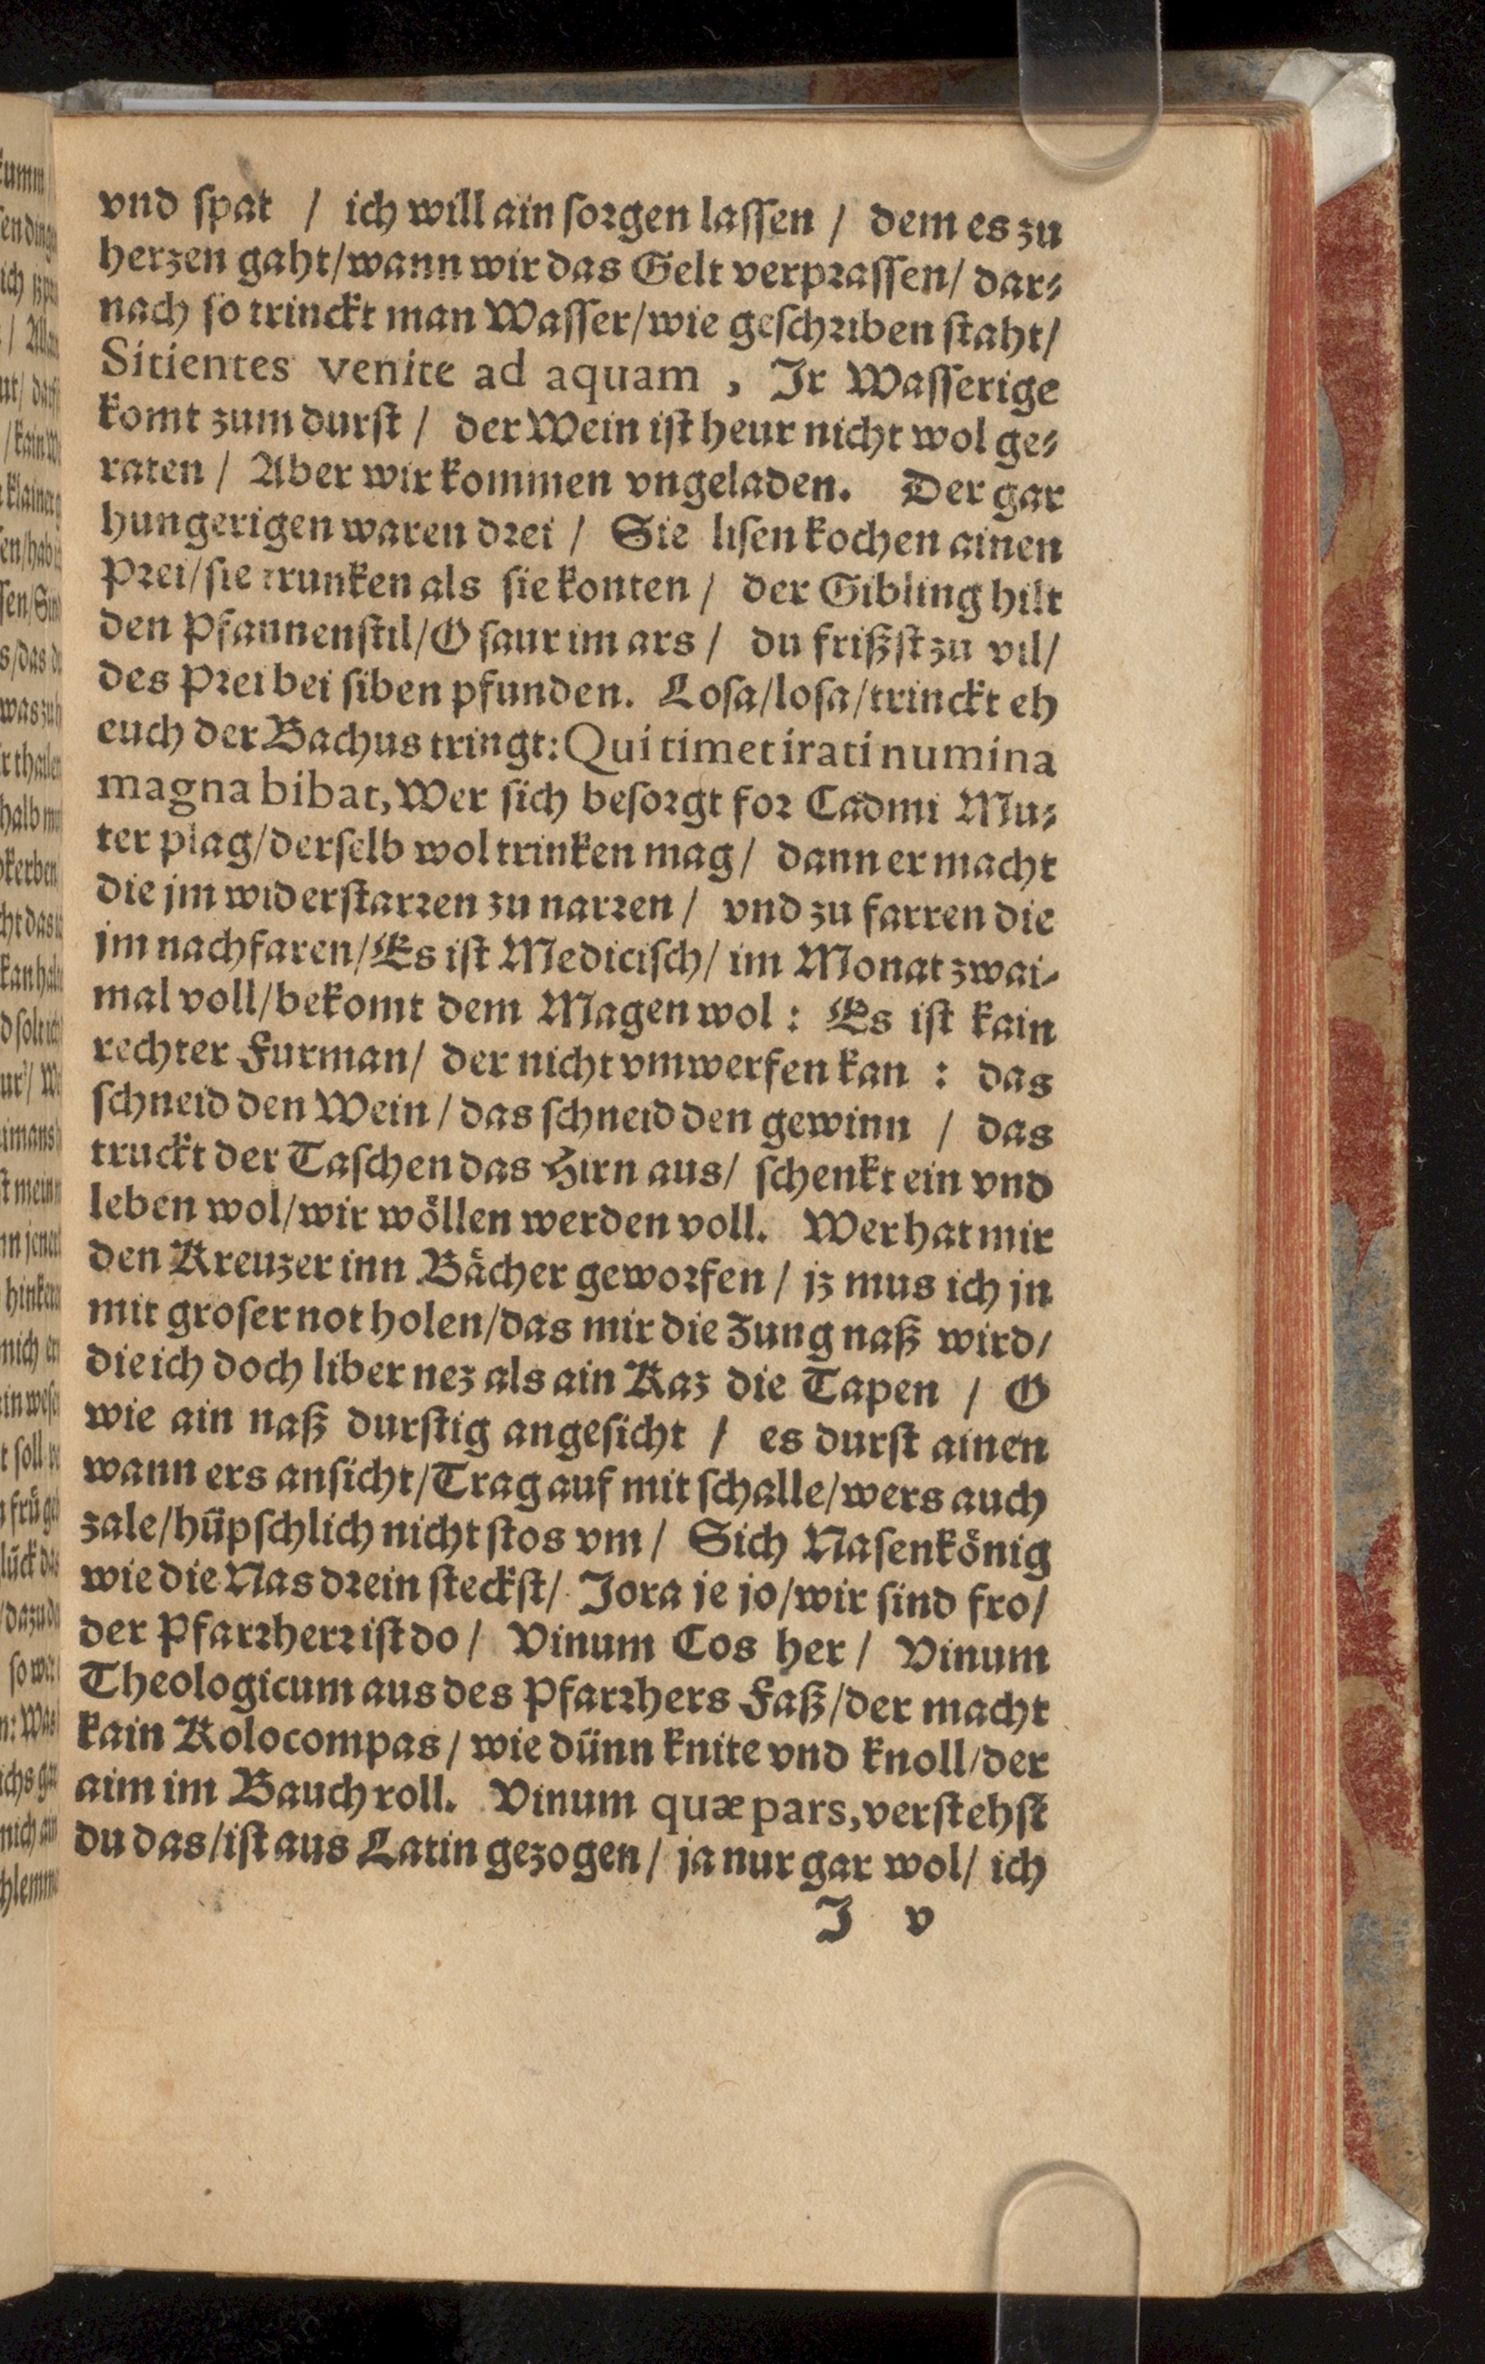 vnd spat / ich will ain sorgen lassen / dem es zu
herzen gaht/wann wir das Gelt verprassen/ dar⸗
nach so trinckt man Wasser/wie geschriben staht/
Sitientes venite ad aquam , Jr Wasserige
komt zum durst / der Wein ist heur nicht wol ge⸗
raten / Aber wir kommen vngeladen. Der gar
hungerigen waren drei / Sie lisen kochen ainen
Prei/sie trunken als sie konten / der Gibling hilt
den Pfannenstil/O saur im ars / du frißst zu vil/
des Prei bei siben pfunden. Losa/losa/trinckt eh
euch der Bachus tringt: Qui timet irati numina
magna bibat, Wer sich besorgt for Cadmi Mu⸗
ter plag/derselb wol trinken mag / dann er macht
die jm widerstarren zu narren / vnd zu farren die
jm nachfaren/Es ist Medicisch/ im Monat zwai⸗
mal voll/bekomt dem Magen wol : Es ist kain
rechter Furman/ der nicht vmwerfen kan : das
schneid den Wein / das schneid den gewinn / das
truckt der Taschen das Hirn aus/ schenkt ein vnd
leben wol/wir wöllen werden voll. Wer hat mir
den Kreuzer inn Bächer geworfen / jz mus ich jn
mit groser not holen/das mir die Zung naß wird/
die ich doch liber nez als ain Kaz die Tapen / O
wie ain naß durstig angesicht / es durst ainen
wann ers ansicht/Trag auf mit schalle/wers auch
zale/hüpschlich nicht stos vm / Sich Nasenkönig
wie die Nas drein steckst/ Jora je jo/wir sind fro/
der Pfarrherr ist do / Vinum Cos her / Vinum
Theologicum aus des Pfarrhers Faß/der macht
kain Kolocompas / wie dünn knite vnd knoll/der
aim im Bauch roll. Vinum quæ pars, verstehst
du das/ist aus Latin gezogen / ja nur gar wol/ ich
J v